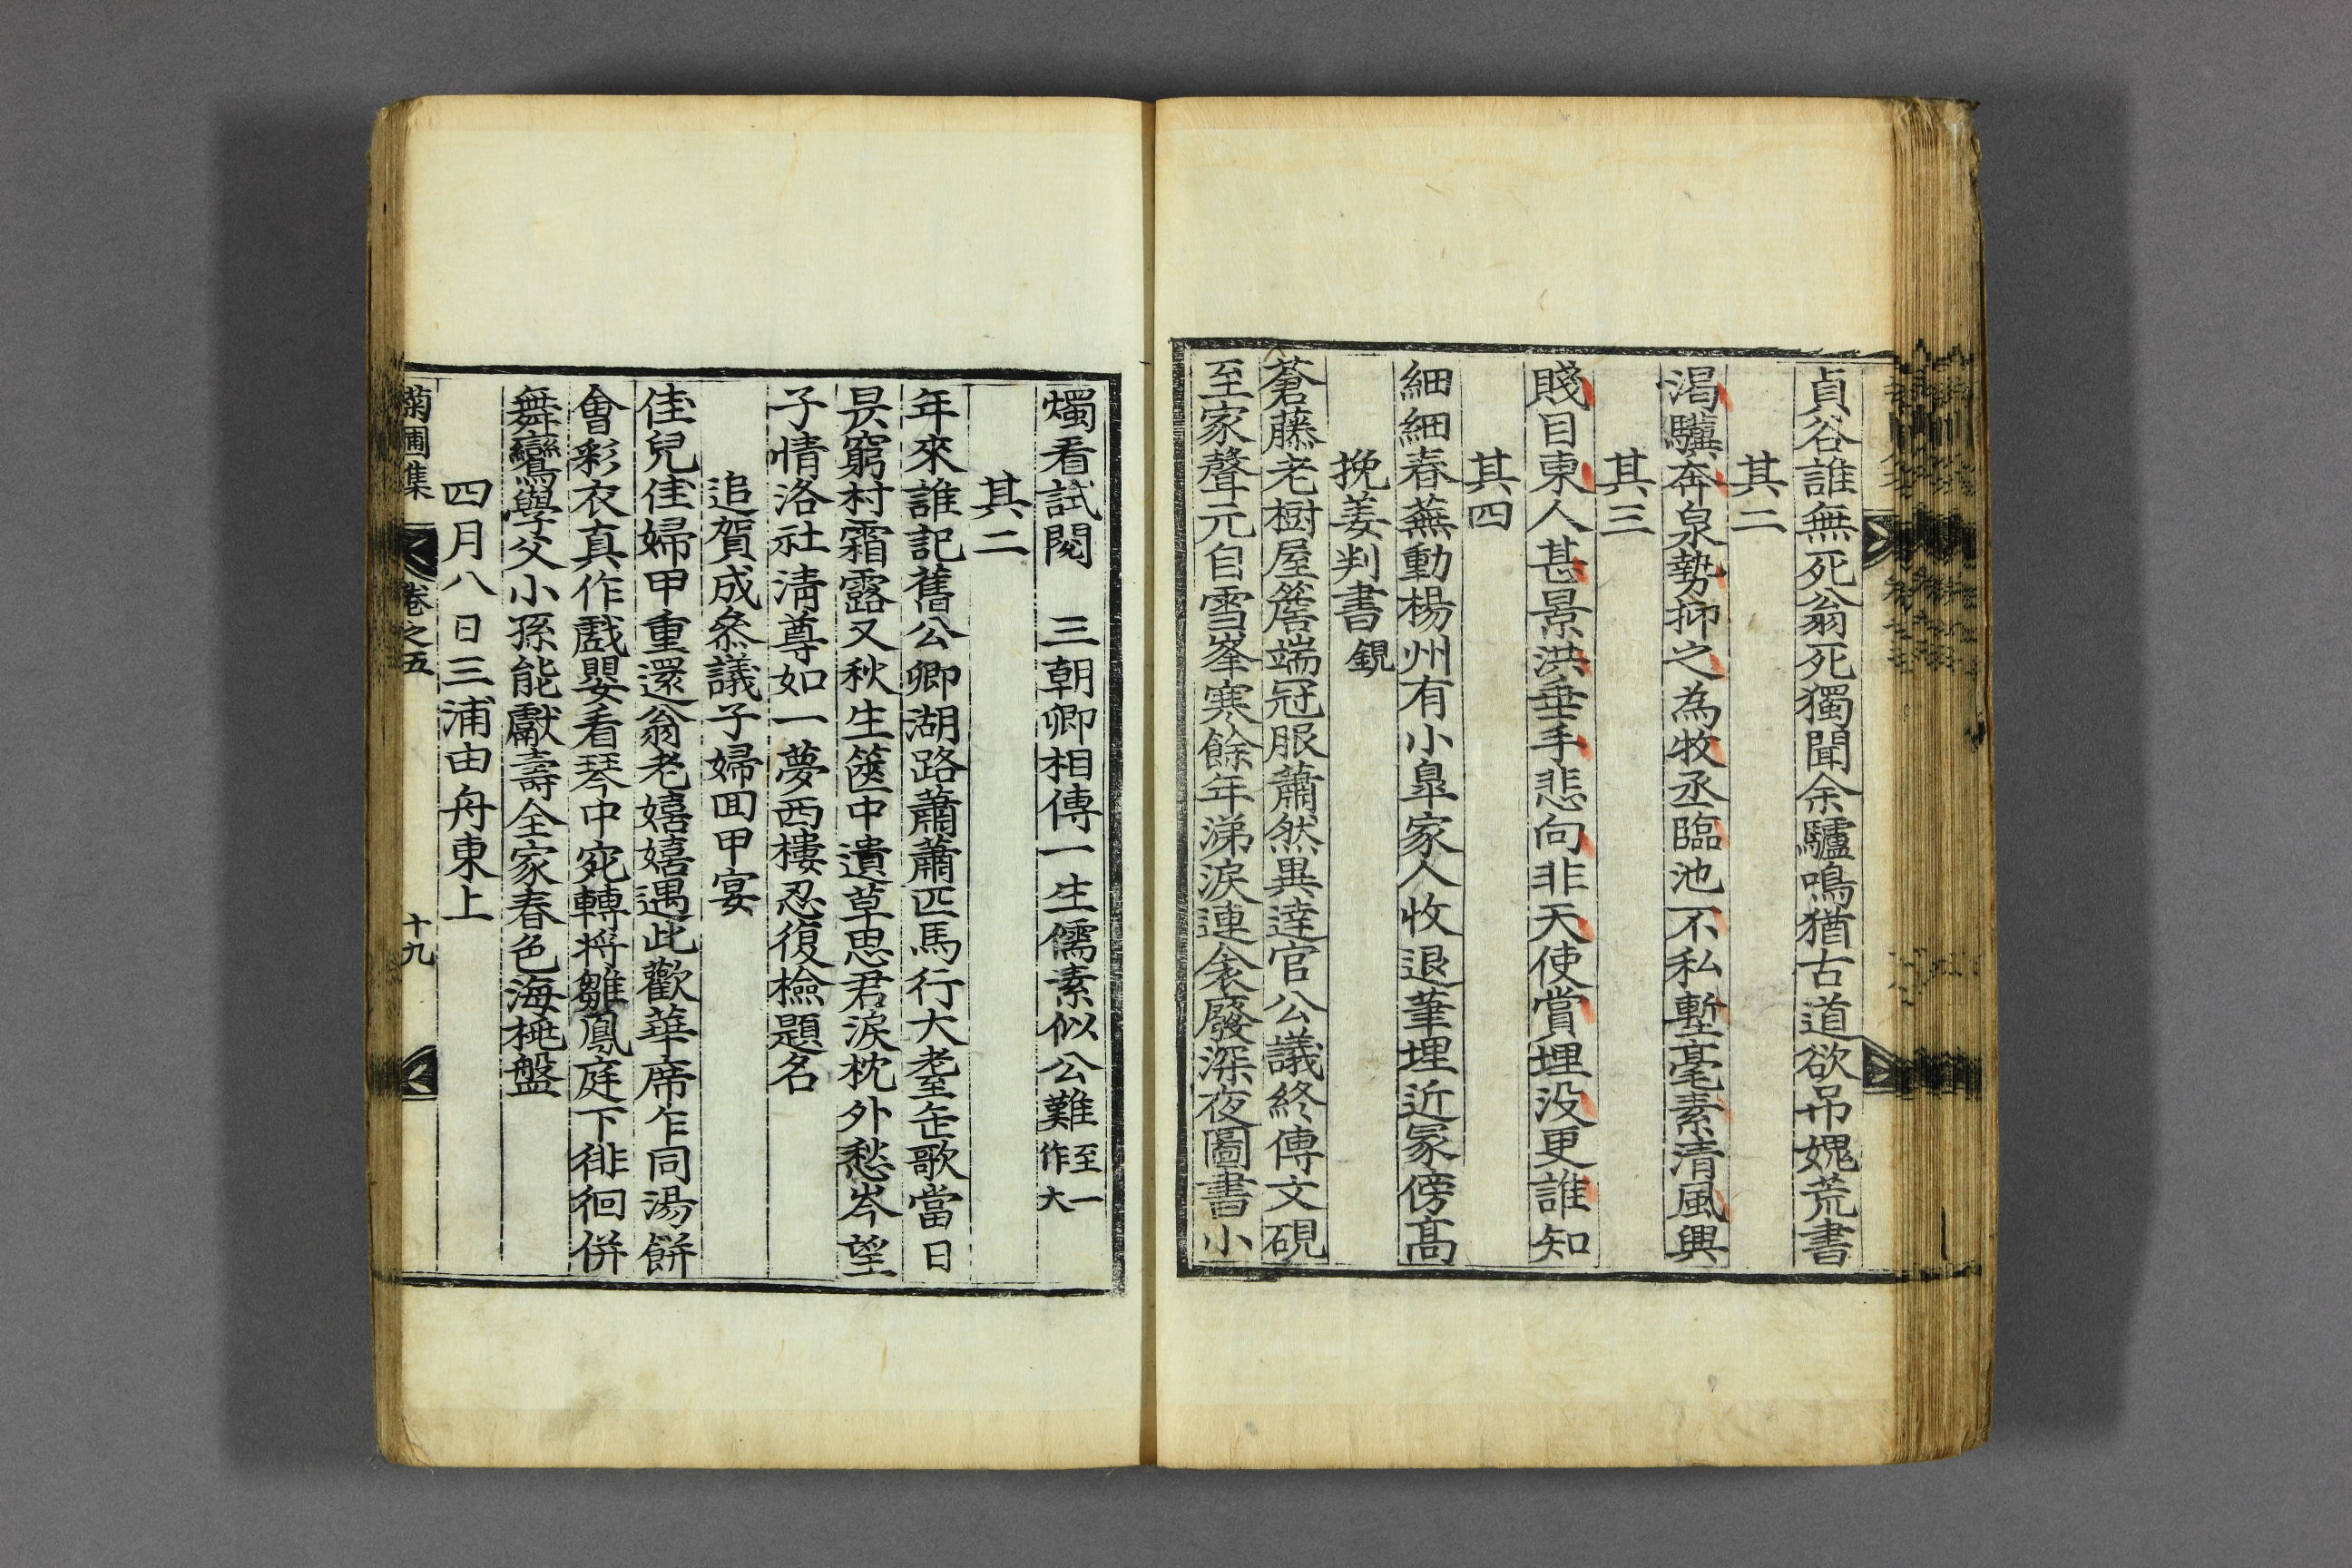 貞谷誰無死翁死獨聞余驢鳴猶古道欲吊媿荒書
其二
渴驥奔泉勢抑之為牧丞臨池不私塹毫素清風興
其三
賤目東人甚景洪垂手悲向非天使賞埋没更誰知
其四
細細春蕪動楊州有小皐家人收退筆埋近冡傍髙
挽姜判書鋧
蒼藤老樹屋簷端冠服蕭然異逹官公議終傳文硯
至家聲元自雪峯寒餘年涕淚連衾廢深夜圖書小
燭看試閱 三朝卿相傳一生儒素似公難至一作大
其二
年來誰記舊公卿湖路蕭蕭匹馬行大耋缶歌當日
昃窮村霜露又秋生篋中遺草思君淚枕外愁岑望
子情洛社淸尊如一夢西樓忍復檢題名
追賀成叅議子婦囬甲宴
佳兒佳婦甲重還翁老嬉嬉遇此歡華席乍同湯餠
會彩衣真作戱嬰看琴中宛轉将雛鳳庭下徘徊併
舞鸞學父小孫能獻壽全家春色海桃盤
四月八日三浦由舟東上
菊圃集 卷之五 十九